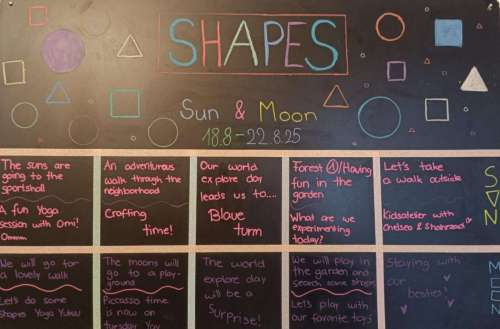 SHAPES
Sun & Moon
18.8-22.8.25
The suns are
going to the
sportshall
A fun Yoga
session with Omi!
Ommm
An adventurous
walk through the
neighborhood
Crafting
time!
Our world
explore day
leads us to....
Blaue
turm
Forest ①/Having
fun in the
garden
What are we
experimenting
today?
Let's take
a walk outside
Kidsatelier with
Chelsea & Shahrzad
SUN
We will go for
a lovely walk
Let's do some
shapes Yoga Yuhuu
The moons will
go to a play-
ground
Piccasso time
is now on
tursday Yay
The world
explore day
will be a
Surprise!
We will play in
the garden and
search some shapes
Let's play with
our favorite toys
Staying with
our
besties!